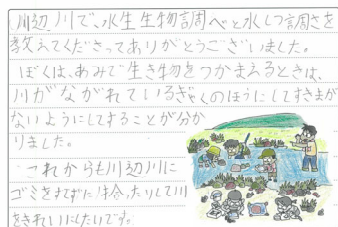 川辺川で、水生生物調べと水しつ調さを
教えてくださってありがとうございました。
ぼくは、あみで生き物をつかまえるときは、
川がながれているぎゃくのほうにしてすきまが
ないようにしてすることが分か
りました。
これからも川辺川に
ゴミをすてずに拾ったりして川
をきれいにしたいです。